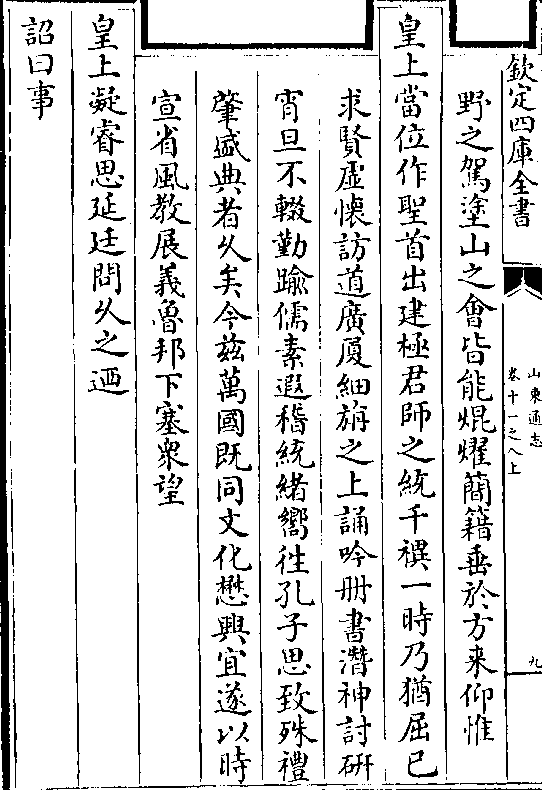 欽定四庫全書
山東通志
卷十一之八上
九
野之駕塗山之會皆能焜燿簡籍垂於方来仰惟
皇上當位作聖首出建極君師之統千禩一時乃猶屈已
求賢虚懷訪道廣厦細旃之上誦吟册書潛神討研
宵旦不輟勤踰儒素遐稽統緒嚮徃孔子思致殊禮
肇盛典者乆矣今兹萬國既同文化懋興宜遂以時
宣省風教展義魯邦下塞衆望
皇上凝睿思延廷問乆之迺
詔曰事